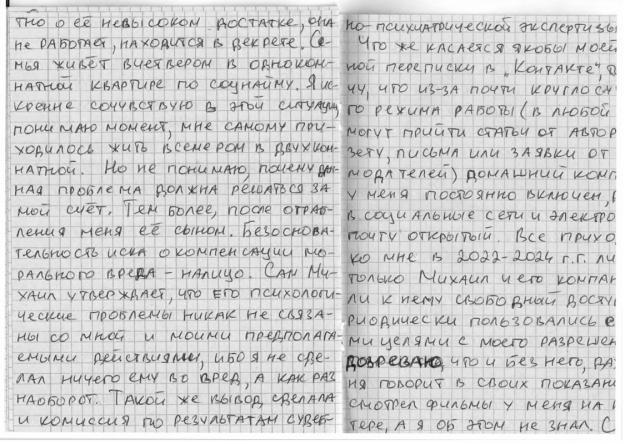 тно о её невысоком достатке, она
не работает, находится в декрете. Се-
мья живёт вчетвером в одноком-
натной квартире по соцнайму. Я ис-
кренне сочувствую в этой ситуации,
понимаю момент, мне самому при-
ходилось жить всемером в двухком-
натной. Но не понимаю, почему дан-
ная проблема должна решаться за
мой счёт. Тем более, после ограб-
ления меня её сыном. Безоснова-
тельность иска о компенсации мо-
рального вреда - налицо. Сам Ми-
хаил утверждает, что его психологи-
ческие проблемы никак не связа-
ны со мной и моими предполага-
емыми действиями, ибо я не сде-
лал ничего ему во вред, а как раз
наоборот. Такой же вывод сделала
и комиссия по результатам судеб-
но-психиатрической экспертизы
Что же касается якобы моей
ной переписки в „Контакте",
чу, что из-за почти круглосу
го режима работы (в любой
могут прийти статьи от автор
зету, письма или заявки от
модателей) домашний комп
у меня постоянно включен,
в социальные сети и электро
почту открытый. Все прихо
ко мне в 2022-2024 г.г. ли
только Михаил и его компан
ли к нему свободный доступ
риодически пользовались е
ми целями с моего разрешен
дозреваю, что и без него, да
ня говорит в своих показан
смотрел фильмы у меня на
тере, а я об этом не знал. С